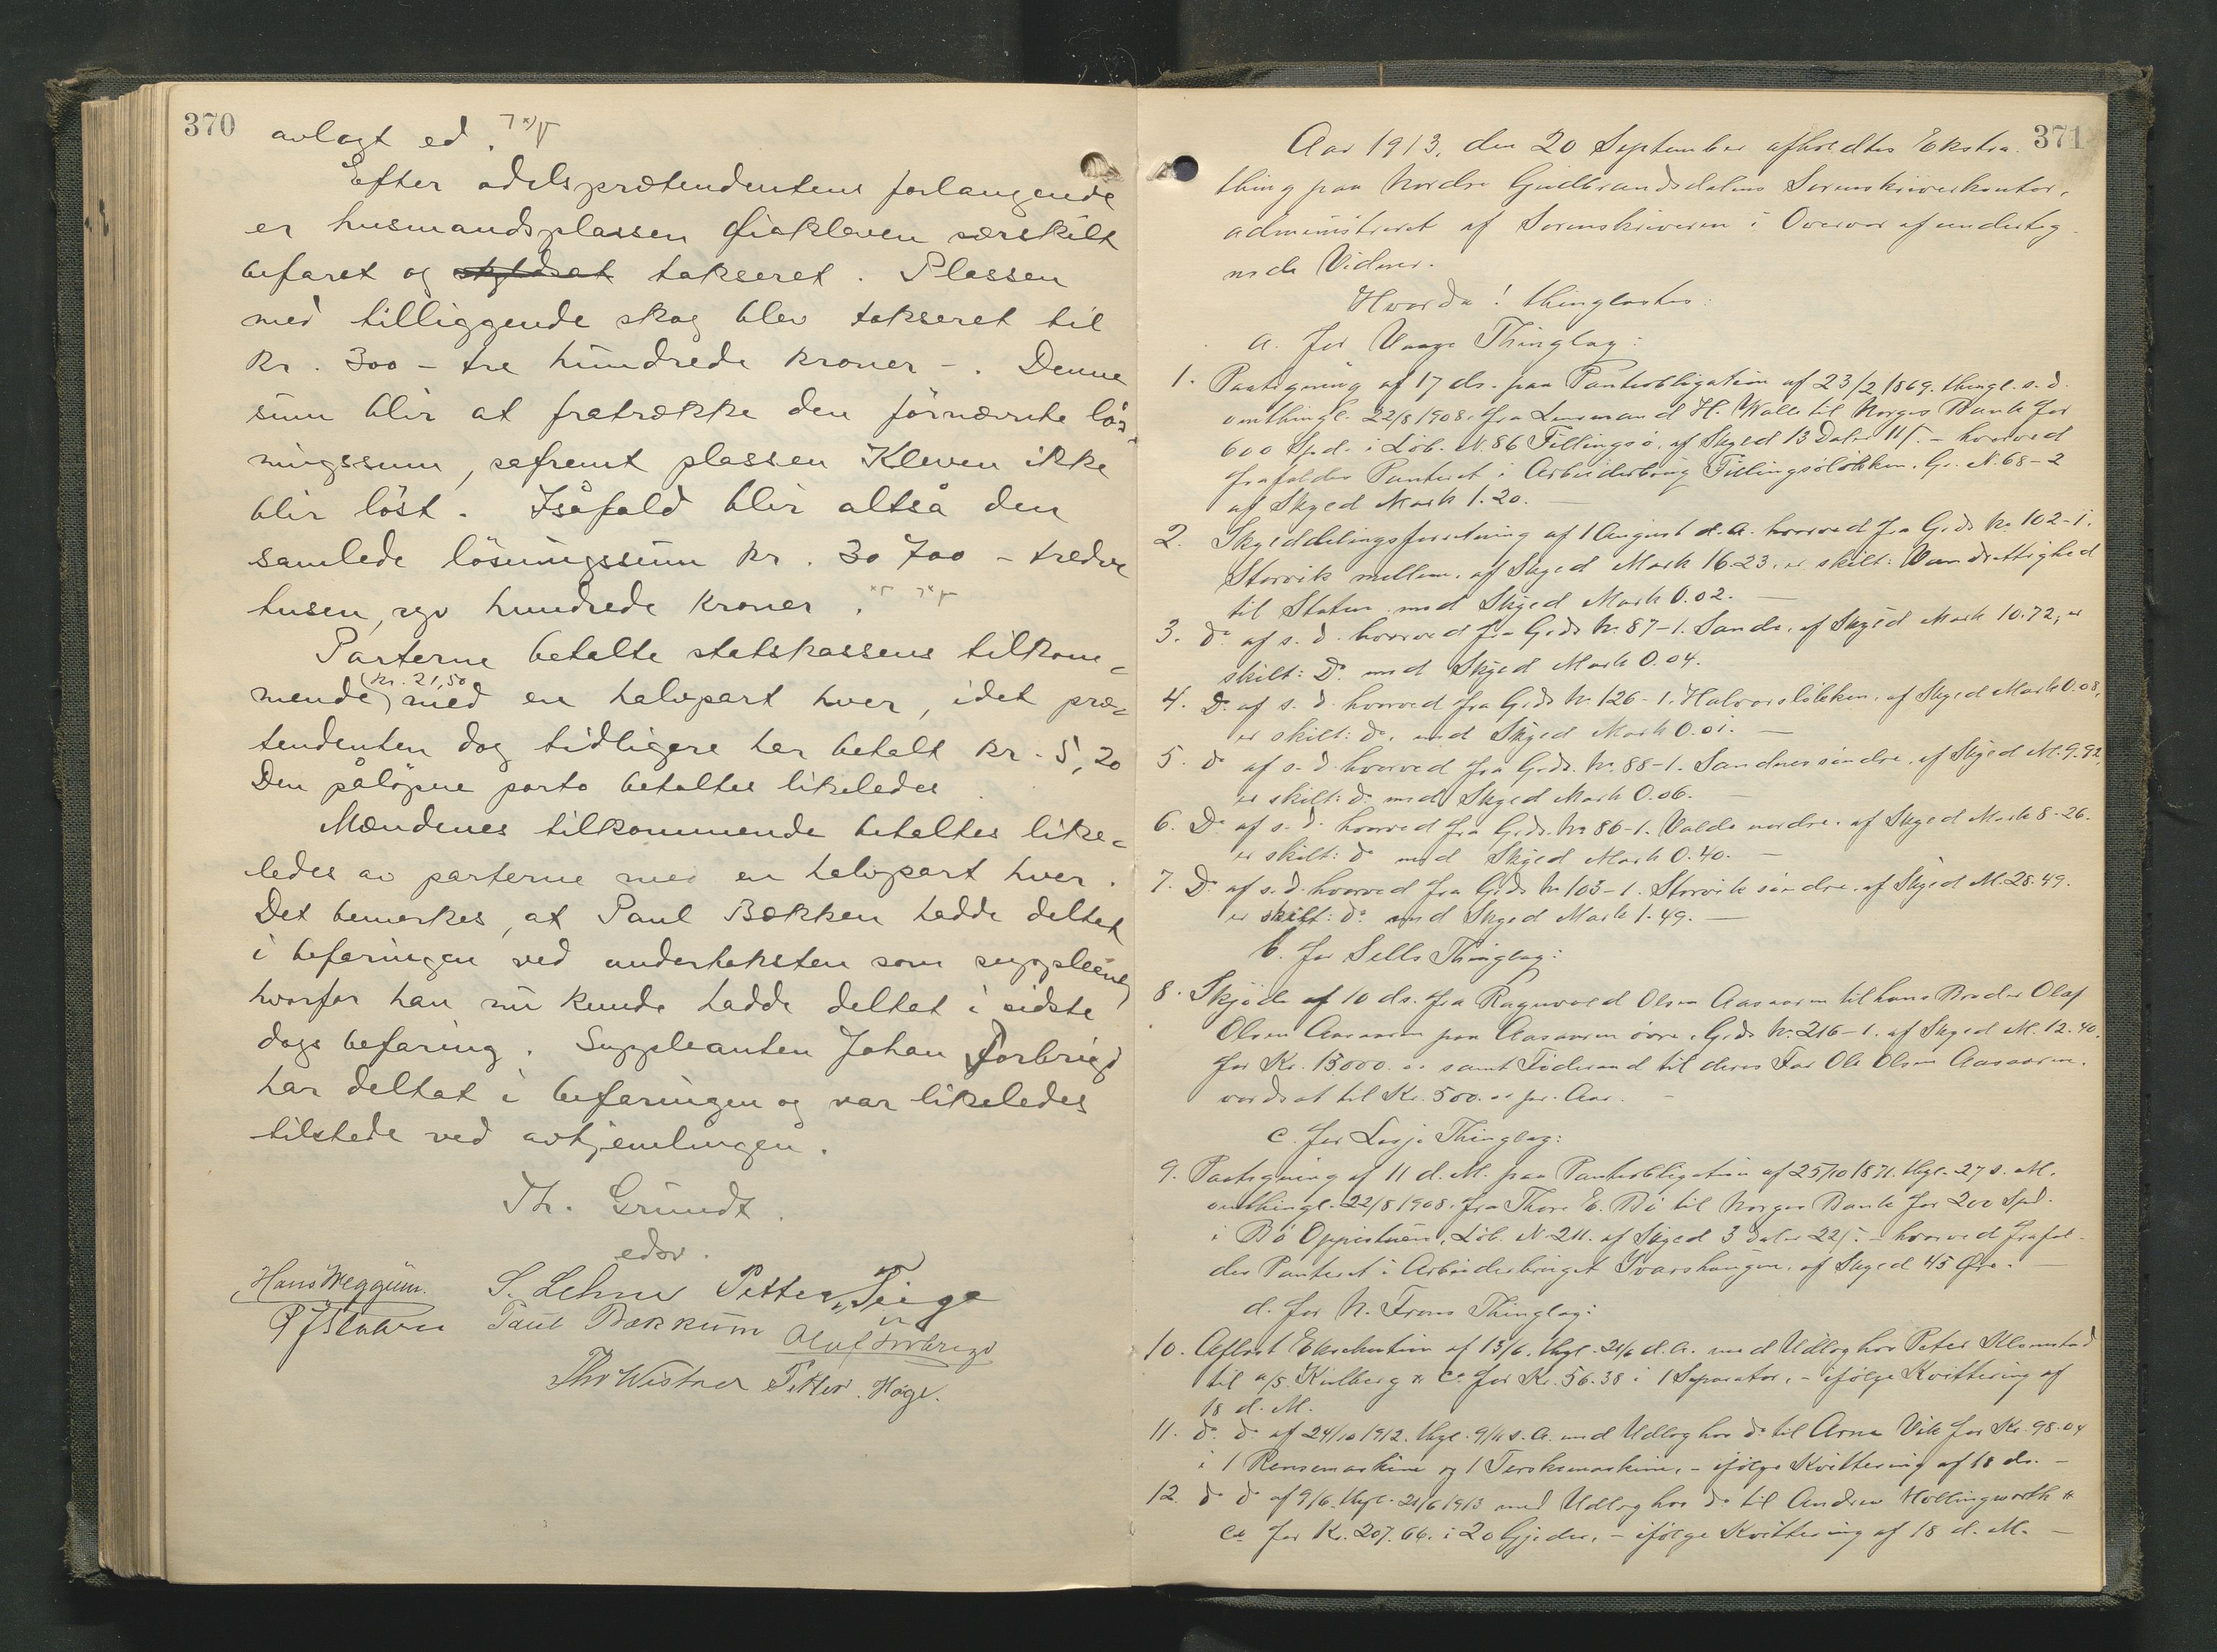 370
avlagt ed.
Efter odelsprætendentens forlangende
er husmandsplassen Øiakleven særskilt
befaret og takseret. Plassen
med tilliggende skog blev takseret til
kr. 300 - tre hundrede kroner -. Denne
sum blir at fratrække den førnævnte løs-
ningssum, safremt plassen Kleven ikke
blir løst. Isåfald blir altså den
samlede løsningssum kr. 30 700 - tredve
tusen, syv hundrede kroner.
Parterne betalte statskassens tilkom=
(kr. 21,50
mende) med en halvpart hver, idet præ=
tendenten dog tidligere har betalt kr. 5,20
Den påløpne porto betaltes likeledes.
Mændenes tilkommende betaltes like=
ledes av parterne med en halvpart hver.
Det bemerkes, at Paul Bækken hadde deltat
i befaringen ved undertaksten som suppleant,
hvorfor han nu kunde hadde deltat i sidste
dags befaring. Suppleanten Johan Forbrigd
har deltat i befaringen og var likeledes
tilstede ved avhjemlingen.
Th. Grundt.
edsv.
Hans Weggum. S. Lehne Petter Teige
Paul Bækkum Oluf Forbrigd
Thv Wistner Petter Høge.
371
Aar 1913, den 20 September afholdtes Ekstra-
thing paa Nordre Gudbrandsdalens Sorenskriverkontor,
administreret af Sorenskriveren i Overvær af underteg-
nede Vidner.
Hvorda! thinglæstes:
a. for Vaage Thinglag:
1. Paategning af 17 ds. paa Pantobligation af 23/2 1869. thingl. s. d.
omthingl. 22/8 1908. fra Lensmand H. Walle til Norges Bank for
600 Spd. i Løb. N. 86 Tillingsø. af Skyld 13 Daler 11 β. - hvorved
frafaldes Panteret i Arbeiderbrug Tillingsøløkken. Gr. N. 68-2
af Skyld Mark 1.20. -
2. Skylddelingsforretning af 1 August d. A. hvorved fra Grds No 102-1.
Storvik mellem. af Skyld Mark 16.23. er skilt: Vandrettighed
til Staten med Skyld Mark 0.02. -
3. Do af s. d. hvorved fra Grds No 87-1. Sande. af Skyld Mark 10.72, er
skilt: Do med Skyld Mark 0.04.
4. Do af s. d. hvorved fra Grds No 126-1. Halvorsløkken. af Skyld Mark 0.08,
er skilt: do. med Skyld Mark 0.01. -
5. do af s. d. hvorved fra Grds. No. 88-1. Sandnes søndre. af Skyld M. 9.92,
er skilt: do med Skyld Mark 0.06. -
6. Do af s. d. hvorved fra Grds. No 86-1. Valde nordre. af Skyld Mark 8.26.
er skilt: do med Skyld Mark 0.40. -
7. Do af s. d. hvorved fra Grds No 103-1. Storvik søndre. af Skyld M. 28.49.
er skilt: do med Skyld Mark 1.49. -
b. for Sells Thinglag:
8. Skjøde af 10 ds. fra Ragnvald Olsen Aasaaren til hans Broder Olaf
Olsen Aasaaren paa Aasaaren øvre. Grds No. 216-1. af Skyld M. 12.40.
for Kr. 13000. samt Føderaad til deres Far Ole Olsen Aasaaren.
værdsat til Kr. 500. pr. Aar. -
c. for Lesje Thinglag:
9. Paategning af 11 d. M. paa Pantobligation af 25/10 1871. thgl. 27 s. M.
omthingl. 22/8 1908. fra Thore E. Bø til Norges Bank for 200 Spd.
i Bø Oppistuen, Løb. N. 211. af Skyld 3 Daler 22 β. - hvorved frafal-
des Panteret i Arbeiderbruget Ivarshaugen. af Skyld 45 Øre. -
d. for N. Frons Thinglag:
10. Aflæst Eksekution af 13/6. thgl. 21/6 d. A. med Udlæg hos Peter Klomstad
til A/S. Kulberg & Co for Kr. 56.38 i 1 Separator, - ifølge Kvittering af
18 d. M.
11. do. do af 24/10 1912. thgl. 9/11 s. A. med Udlæg hos do til Arne Vik for Kr. 98.04
i 1 Rensemaskine og 1 Tærskemaskine, - ifølge Kvittering af 18 ds. -
12. do do af 9/6. thgl. 21/6 1913 med Udlæg hos do til Andrew Hollingworth &
Co for Kr. 207.66. i 20 Gjeder, - ifølge Kvittering af 18 d. M. -